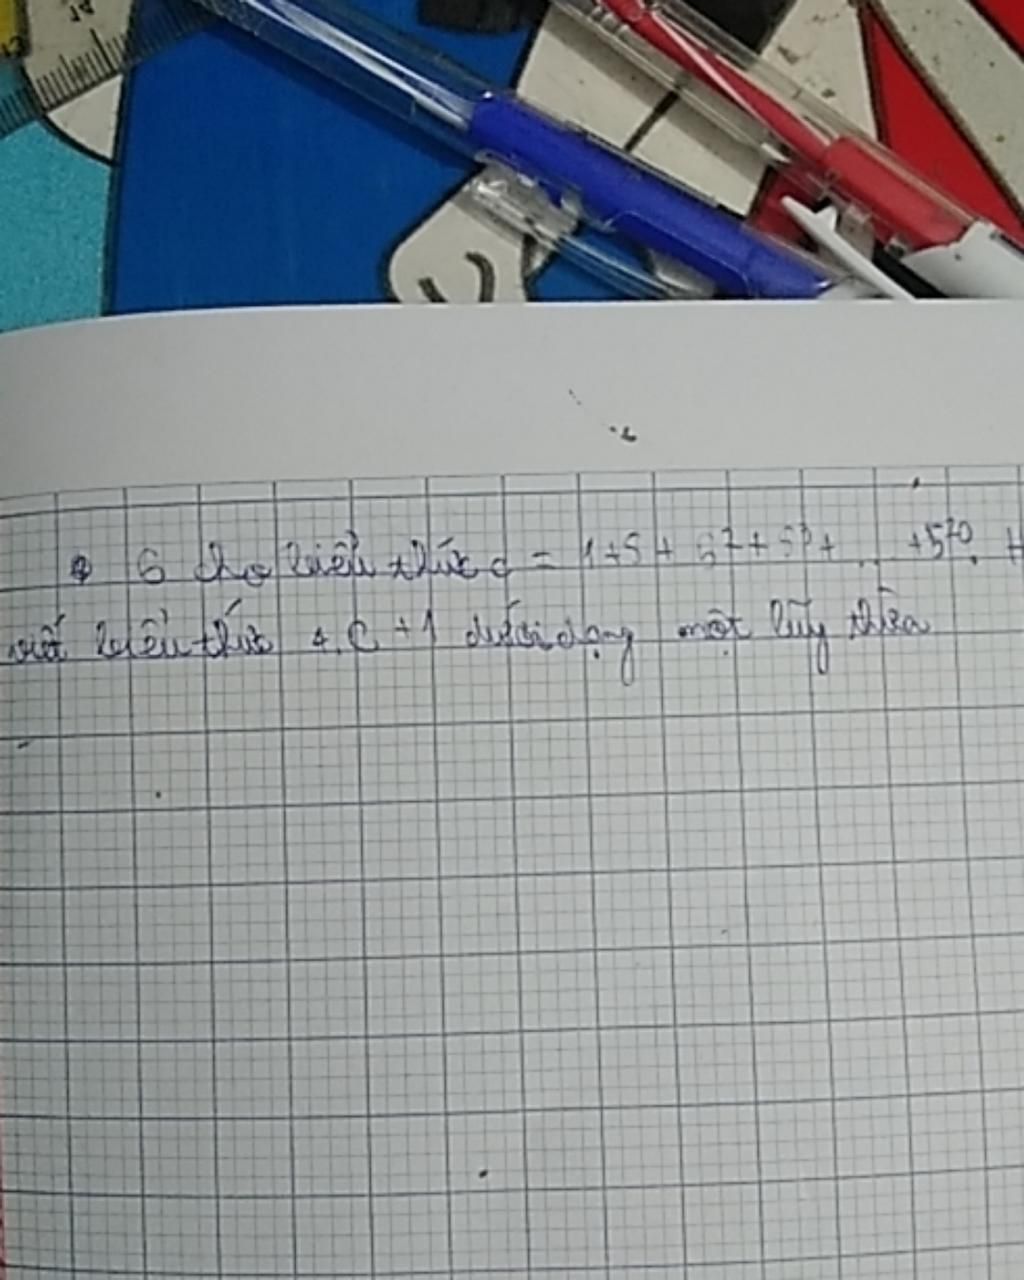 14
6 cho biểu thức c = 1+5+ 5²+5³+ ... +5²⁰. H
viết biểu thức 4.C+1 dưới dạng một lũy thừa